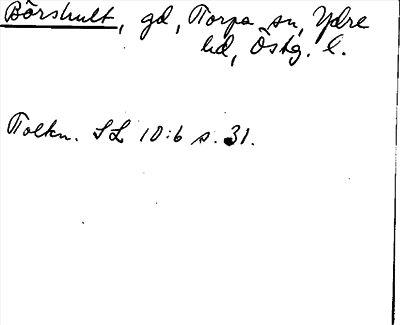 Börshult, gd, Torpa sn, Ydre
hd, Östg. l.
Tolkn. SL 10:6 s. 31.